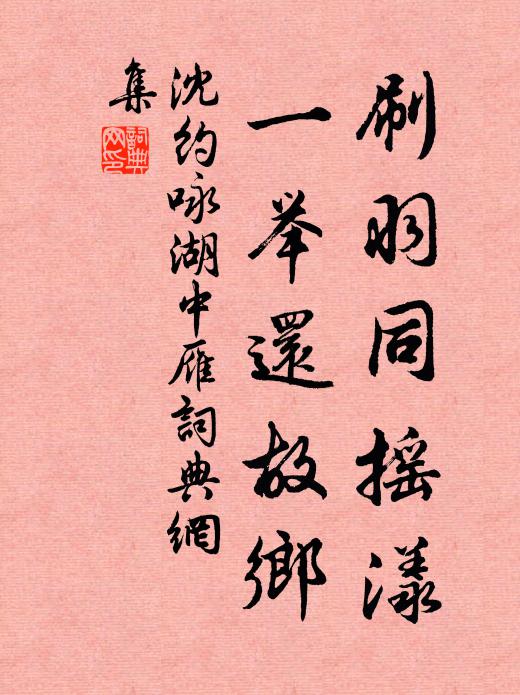 刷羽同摇漾
一举還故鄉
沈约咏湖中雁詞典網
集
詞典
网印